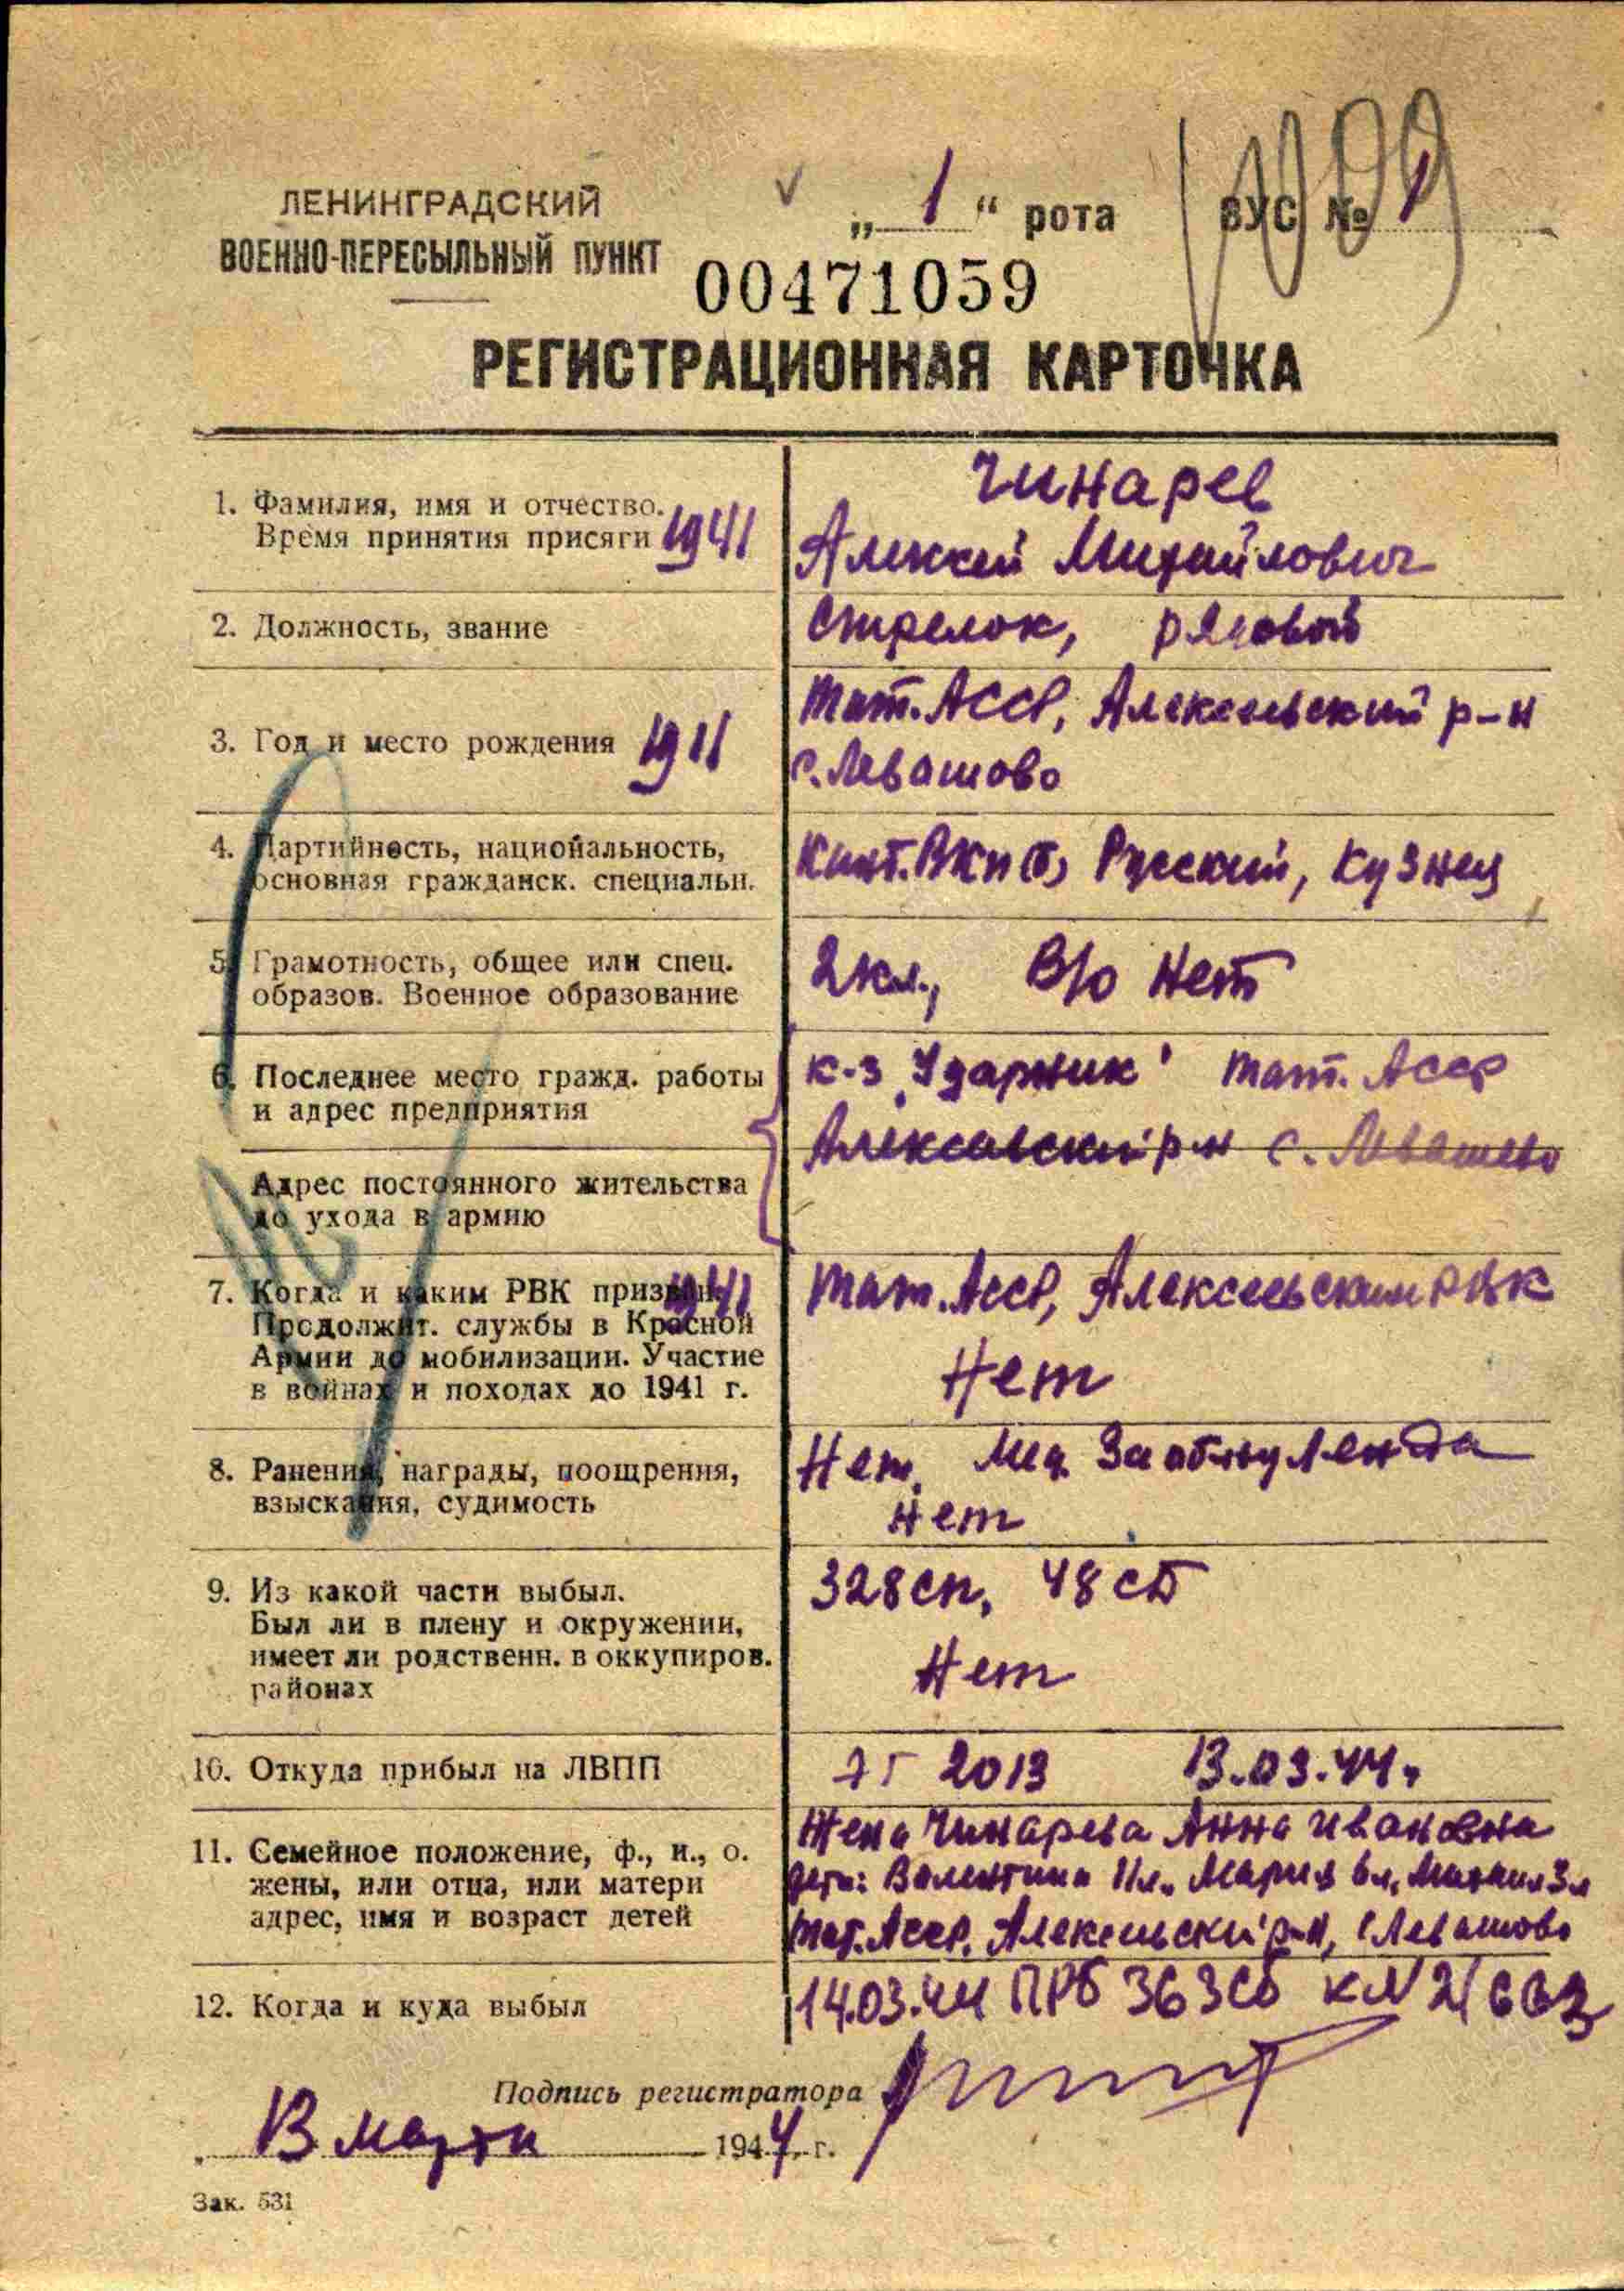 ЛЕНИНГРАДСКИЙ
ВОЕННО-ПЕРЕСЫЛЬНЫЙ ПУНКТ
„ 1 “ рота ВУС № 1
00471059
РЕГИСТРАЦИОННАЯ КАРТОЧКА
1. Фамилия, имя и отчество.
Время принятия присяги 1941
Чинарев
Алексей Михайлович
2. Должность, звание
Стрелок, рядовой
3. Год и место рождения 1911
Тат. АССР, Алексеевский р-н
с. Левашово
4. Партийность, национальность,
основная гражданск. специальн.
Канд. ВКП(б) Русский, Кузнец
5. Грамотность, общее или спец.
образов. Военное образование
2 кл., В/о Нет
6. Последнее место гражд. работы
и адрес предприятия
к-з „Ударник" Тат. Асср
Алексеевский р-н с. Левашево
Адрес постоянного жительства
до ухода в армию
7. Когда и каким РВК призван. 1941
Продолжит. службы в Красной
Армии до мобилизации. Участие
в войнах и походах до 1941 г.
Тат. Асср, Алексеевским РВК
Нет
8. Ранения, награды, поощрения,
взыскания, судимость
Нет, Мед. За обону Ленгда
Нет
9. Из какой части выбыл.
Был ли в плену и окружении,
имеет ли родственн. в оккупиров.
районах
328 сп, 48 сд
Нет
10. Откуда прибыл на ЛВПП
2013 13.03.44г
11. Семейное положение, ф., и., о.
жены, или отца, или матери
адрес, имя и возраст детей
Жена Чинарева Анна Ивановна
дети: Валентина 11л., Мария 6л, Михаил 3л
Тат. Асср, Алексеевский р-н, с Левашово
12. Когда и куда выбыл
14.03.44 ПРБ 36 ЗСБ к №2/663
Подпись регистратора
„ 13 марта 1944 г.
Зак. 531